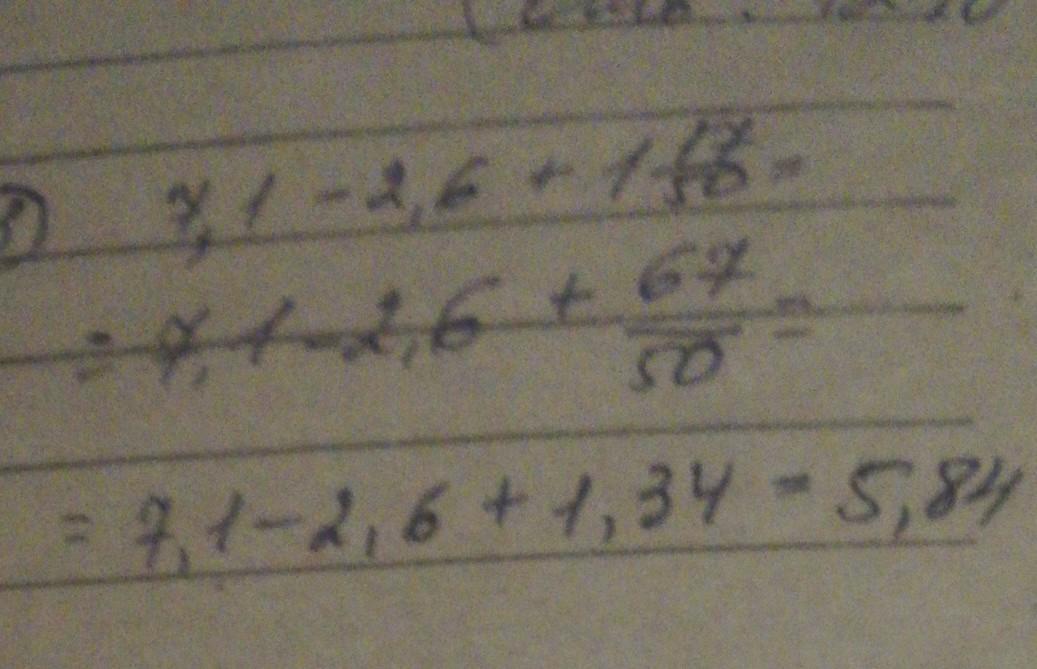 3) 7,1 - 2,6 + 1 17/50 =
= 7,1 - 2,6 + 67/50 =
= 7,1 - 2,6 + 1,34 = 5,84